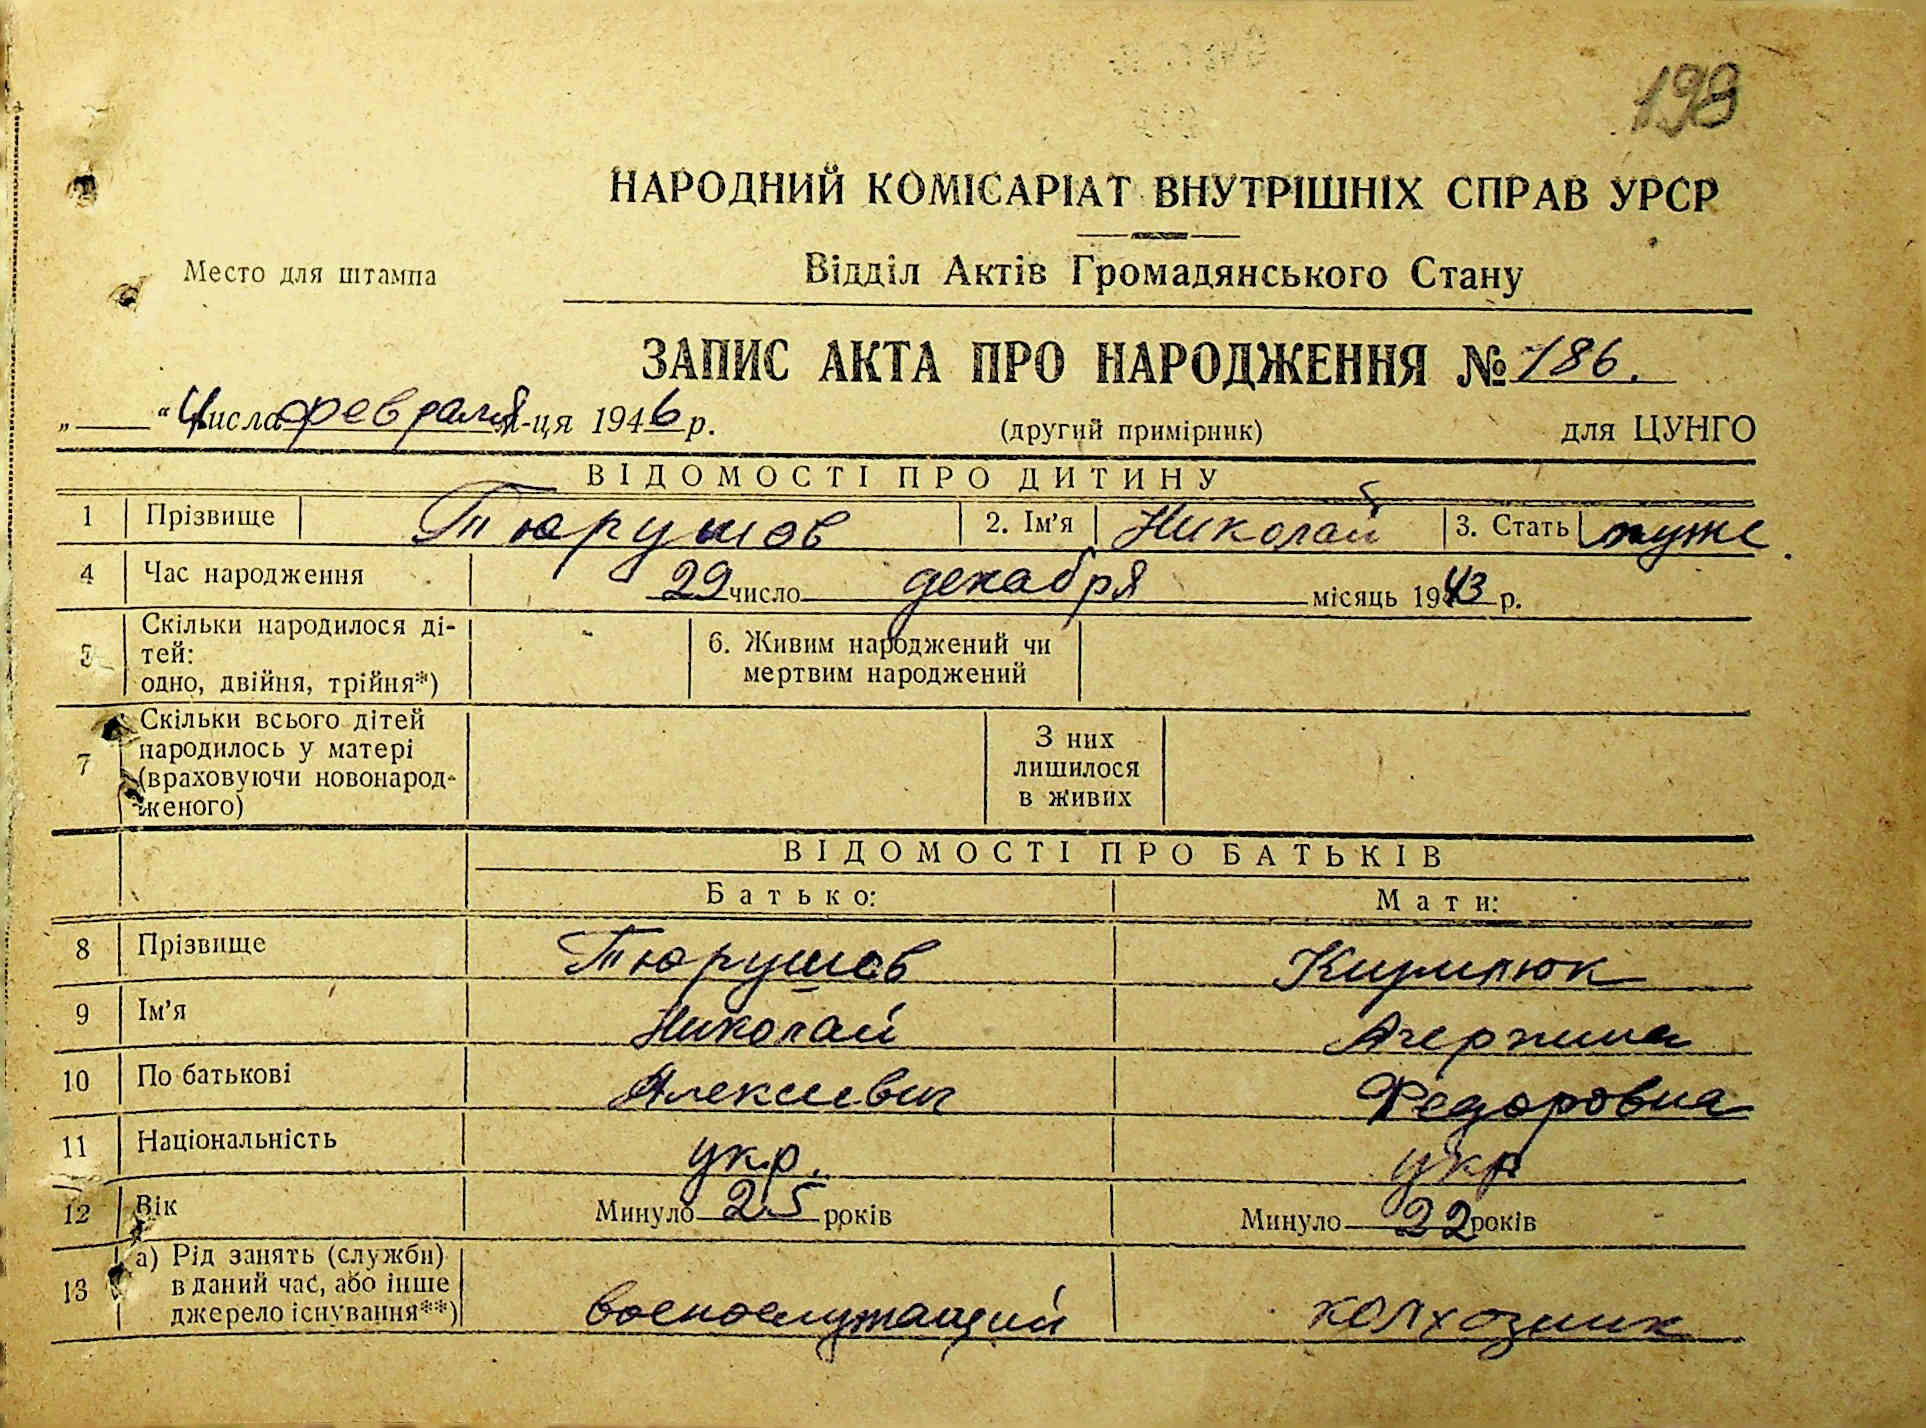 198
НАРОДНИЙ КОМІСАРІАТ ВНУТРІШНІХ СПРАВ УРСР
Место для штампа
Відділ Актів Громадянського Стану
ЗАПИС АКТА ПРО НАРОДЖЕННЯ № 186.
„ “ 4 числа февраля м-ця 1946 р.
(другий примірник)
для ЦУНГО
ВІДОМОСТІ ПРО ДИТИНУ
1 Прізвище Тюрушов 2. Ім'я Николай 3. Стать муж.
4 Час народження 29 число декабря місяць 1943 р.
5 Скільки народилося ді-
тей:
одно, двійня, трійня*)
6. Живим народжений чи
мертвим народжений
7 Скільки всього дітей
народилось у матері
(враховуючи новонарод-
женого)
З них
лишилося
в живих
ВІДОМОСТІ ПРО БАТЬКІВ
Батько: Мати:
8 Прізвище Тюрушов Кирилюк
9 Ім'я Николай
10 По батькові Алексеевич Федоровна
11 Національність укр. укр
12 Вік Минуло 25 років Минуло 22 років
13 а) Рід занять (служби)
в даний час, або інше
джерело існування**)
военослужащий колхозник